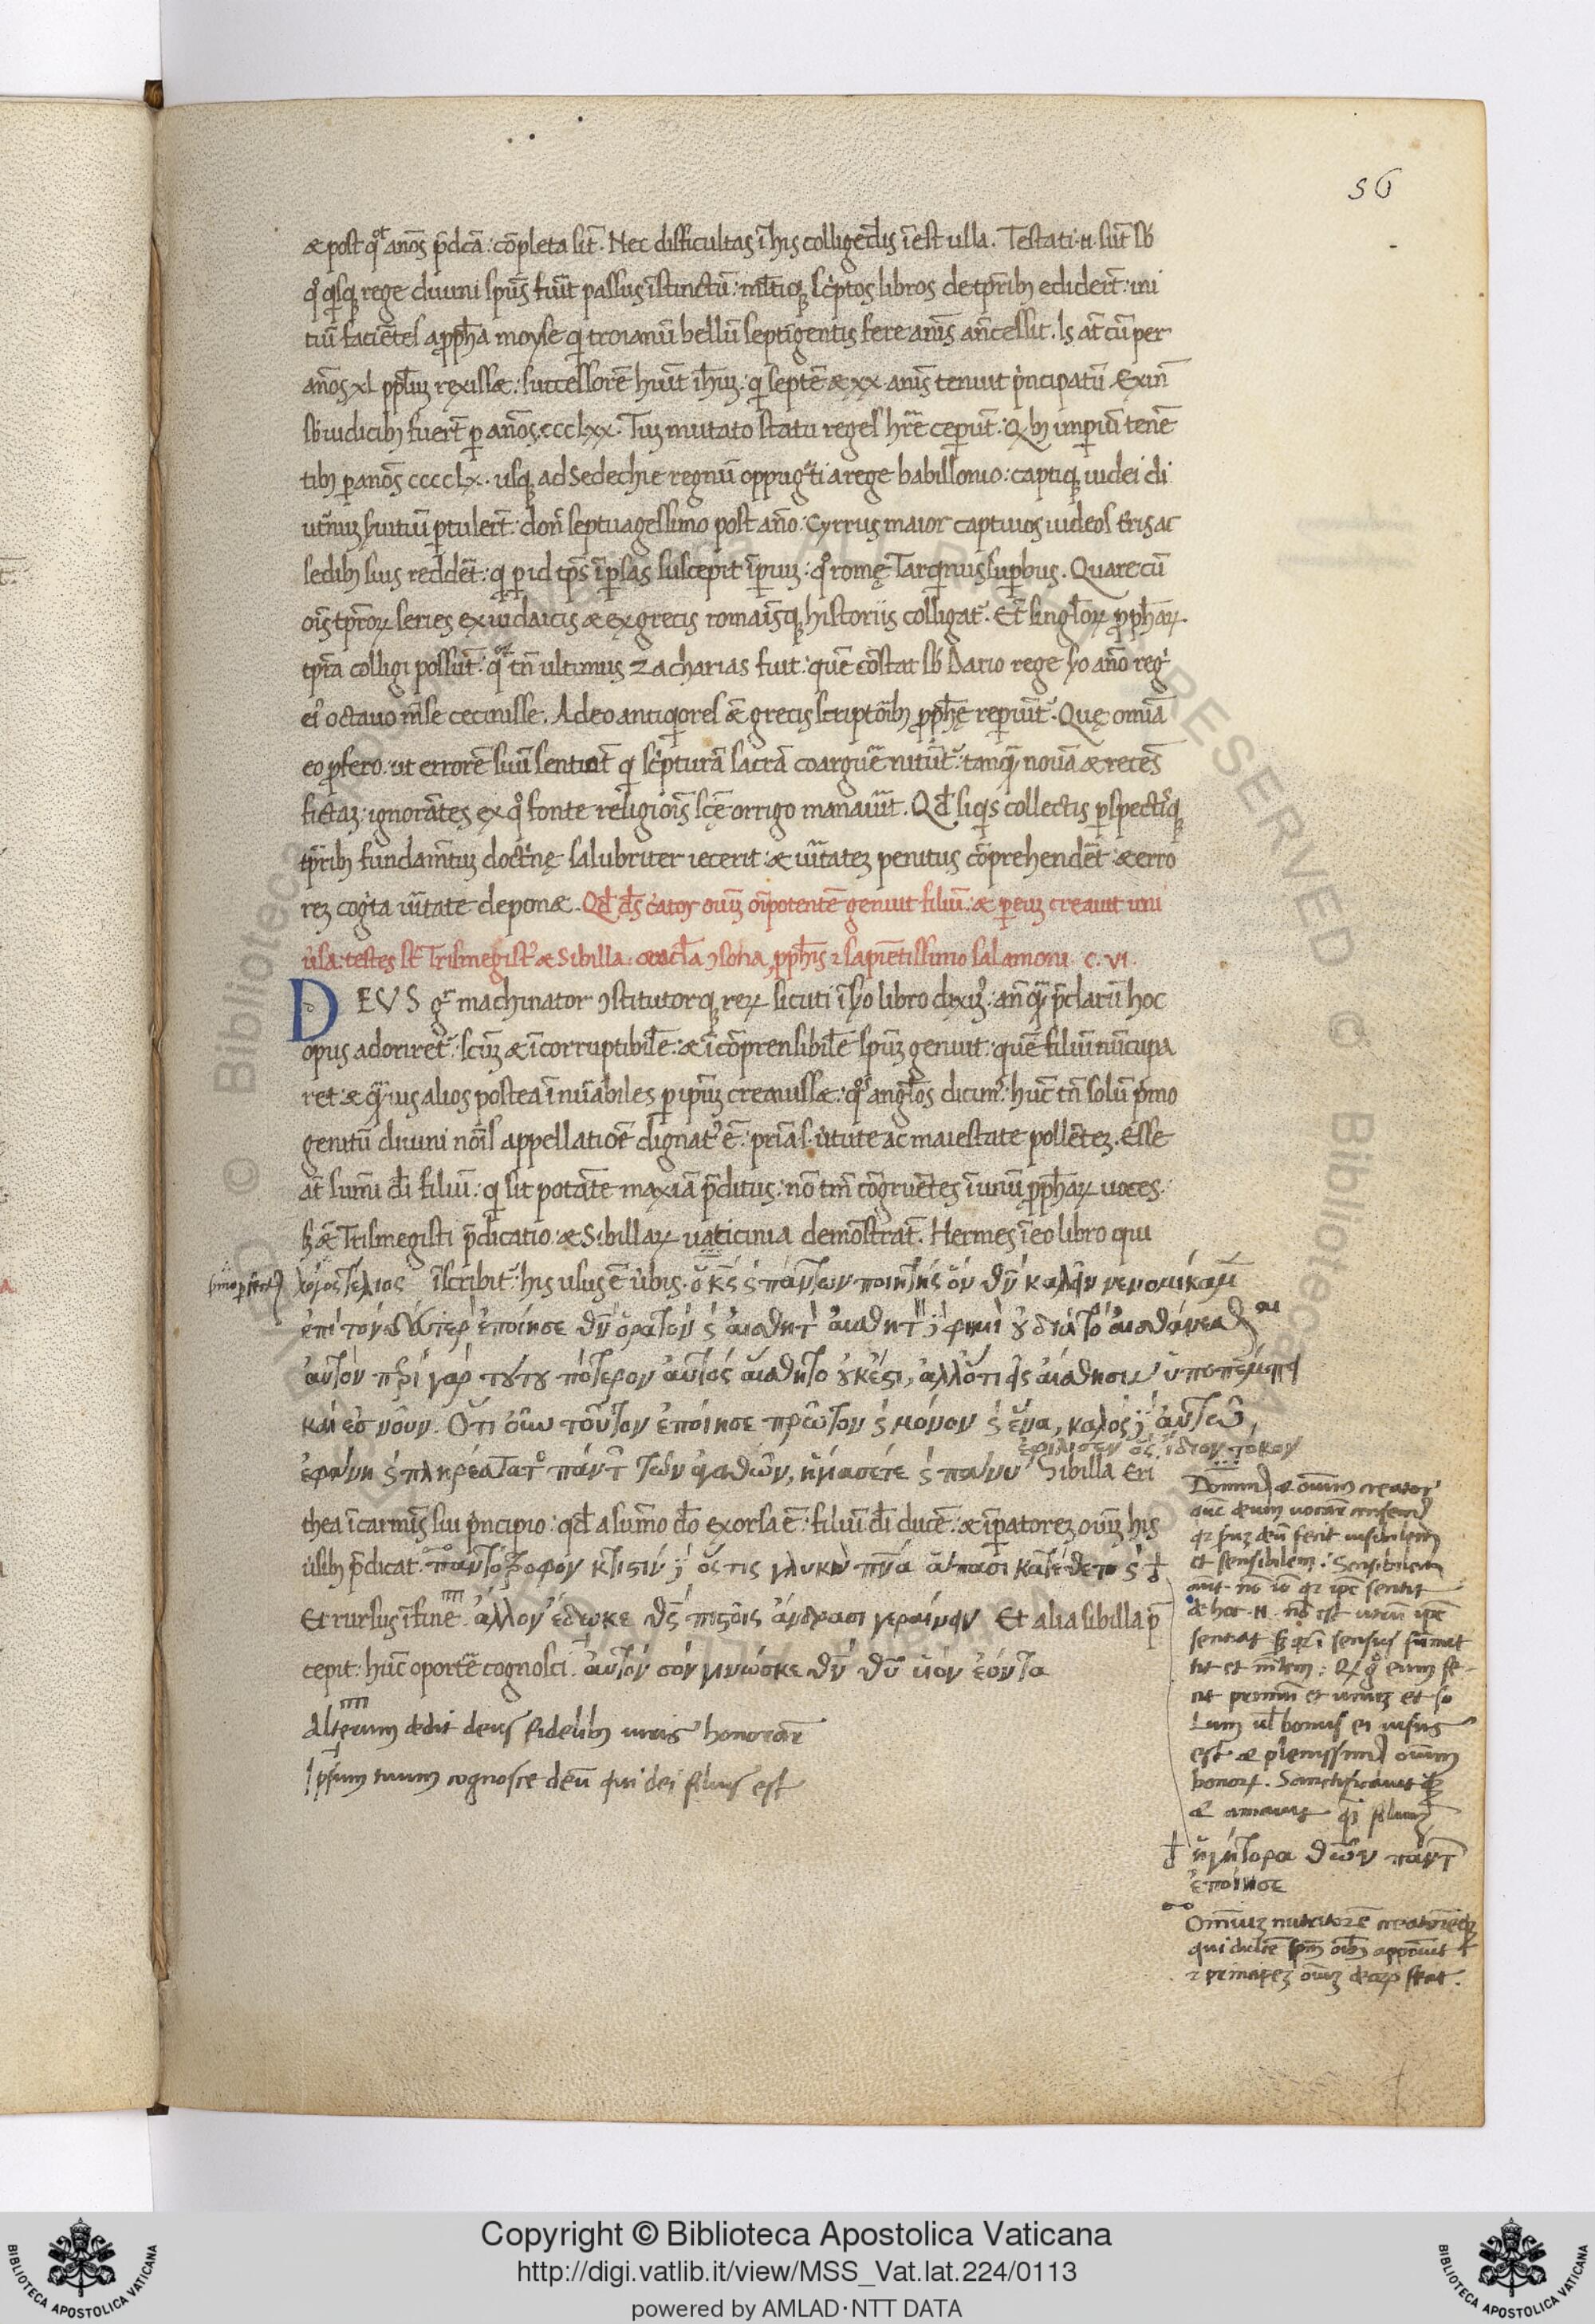 56
æ post qͦt ano̅s p̅dca̅: co̅pleta sit̅. Nec difficultas i̅ his collige̅dis i̅est ulla. Testati .n. su̅t sb
qͦ qisq; rege diuini spu̅s fui̅t passus i̅stinctu̅: ml̅tiq; sc̓ptos libros de tp̅rib; edider̅t: ini
tiu̅ facie̅tes a p̱ph̅a moyse qi troianu̅ bellu̅ septi̅gentis fere anni̅s an̅cessit. Is at̅ cu̅ per
an̅os xl pp̅lu̅ rexissæ: successore̅ hu̅it ih̅u̅: qi septe̅ æ xx anni̅s tenuit p̓ncipatu̅. Exin̅
sb iudicib; fuer̅t p̱ an̅os ccclxx. Tu̅ mutato statu reges hr̅e ceper̅u̅t. Qib; imp̱iu̅ tene̅
tib; p̱ ano̅s cccclx. usq; ad Sedechie regnu̅ oppug̅ti a rege babillonio: captiq; iudei di
utn̅u̅ s̓uitiu̅ p̱tuler̅t: don̅ septuagessimo post an̅o: Cyrrus maior captiuos iudeos t̅ris ac
sedib; suis redde̅t: qi p̱ id tp̅s i̅ p̱sas suscepit i̅p̱iu̅: qͦ romę Tarqinius sup̱bus. Quare cu̅
oi̅s tp̅ror̅ series ex iudaicis æ ex grecis romai̅sq; historiis colligat̅. Et̅ singl̅or̅ p̱ph̅ar̅
tp̅ra colligi possu̅t: qͦr̅ tn̅ ultimus Zacharias fuit: que̅ co̅stat sb Dario rege s̓o an̅o reg̅
ei̓ octauo m̅se cecinisse. Adeo antiqiores æ̅ grecis scripto̅ib; p̱ph̅ę rep̱iu̅t̅. Quę omi̅a
eo p̱fero: ut errore̅ suu̅ sentiat̅ qi sc̓ptura̅ sacra̅ coargue̅ nitu̅t̅: tanq̅ noua̅ æ rece̅s
ficta̅: ignora̅tes ex qͦ fonte religioi̅s sc̅ę orrigo manaui̅t. Qd̅ siqis collectis p̱spectisq;
tp̅rib; fundam̅tu̅ doctr̓nę salubriter iecerit: æ ui̅tate̅ penitus co̅prehende̅t: æ erro
re̅ cog̓ta ui̅tate deponæ. Qd̅ ds̅ c̓ator oi̅u̅ oi̅potente̅ genuit filiu̅: æ p̱ eu̅ creauit uni
u̓sa: testes st̅ Trismegist̓ æ Sibilla: oracl̅a ꝯsona, p̱ph̅is ⁊ sapie̅tissimo salamoni c. vi.
DEUS gͥ machinator ꝯstitutorq; rer̅ sicuti i̅ s̓o libro diximꝰ: an̅ q̅ p̅claru̅ hoc
opus adoriret̅: sc̅m æ i̅corruptibile̅: æ i̅co̅prensibile̅ spu̅m genuit: que̅ filiu̅ nu̅cupa
ret: æ q̅uis alios postea i̅nui̅abiles p̱ ipsu̅ creauissæ: qͦs angl̅os dicimꝰ: hu̅c tn̅ solu̅ pimo
genitu̅ diuini no̅is appellatio̅e dignatꝰ e̅: pria̅ s. u̓tute ac maiestate polle̅te̅. Esse
at̅ summi dei̅ filiu̅: qi sit potæ̅te maxia̅ p̅ditus: no̅ tm̅ co̅grue̅tes i̅ unu̅ p̱ph̅ar̅ uoces:
s; æ̅ Trismegisti p̅dicatio: æ Sibillar̅ uaticinia demo̅strat̅. Hermes i̅ eo libro qui
λόγος τέλιος i̅scribit̅: his usus e̅ u̓bis. ὁ κς̅ ϛ πάντων ποιητὴς ὃν θν̅ καλεῖν νενομίκαμ̅
ἐπὶ τὸν δεύτερ̅ ἐποίησε θν̅ ὁρατὸν ϛ αἰσθητ̅ αἰσθητ̅ ϳ φημὶ ȣ διὰ τὸ αἰσθάνεσθαι
αὐτὸν πϱὶ γὰρ τȣ́τȣ πότερον αὐτὸς αἴσθητο ȣκ ἔϛι, ἀλλ' ὅτι εἰς αἴσθησιν ὑποπέμπει
καὶ ἐσ νοῦν. Ὅτι ὀῦω τοῦτον ἐποίησε πρῶτον ϛ μόνον ϛ ἕνα, καλὸς ϳ αὐτῶ
ἐφίλισεν ὡς ἴδιον τόκον
ἐφάνη ϛ πληρέστατο̅ πάντ̅ τῶν ἀγαθῶν, ἡγίασέτε ϛ πάνυ Sibilla Eri
thea i̅ carmi̅s sui p̓ncipio: qd̅ a su̅mo do̅ exorsa e̅: filiu̅ di̅ duce̅: æ i̅p̱atore̅ oi̅u̅ his
u̓sib; p̅dicat. παντοτρόφον κτίσιν ϳ ὅς τις γλυκὺ πν̅α ἅπασι κατέθετο ϛ
Et rursus i̅ fine. ἄλλον ἔδωκε θς̅ πιϛοῖς ἀνδράσι γεραίρειν Et alia sibilla p̅
cepit: hu̅c oporte̅ cognosci. αὐτὸν σὸν γινώσκε θν̅ θυ̅ υἱὸν ἐόντα
Alterum dedit deus fidelib; uiris honorare̅
Ipsum tuum cognosce deu̅ qui dei filius est
Domin̅ æ oi̅um creator
que̅ deum uocare
qr̅ deu̅ fecit uisibilem
et sensibilem: Sensibilem
aut̅ no̅ io̅ qr̅ ip̅e sentit
de hoc .n. no̅ est utru̅ ip̅e
sentiat s; qr̅ i̅ sensus su̅mit
tit et me̅tem: Qr̅ gͦ eum fe
cit primu̅ et unu̅ et so
lum ul̅ bonus ei uisus
est æ plenissim̅ oi̅um
bonor̅. Sanctificauit q̅;
æ amauit
ἡγήτορα θεῶν πάντ̅
ἐποίησε
Omniu̅ nutritore̅ creatore̅q;
qui dulce̅ spm̅ oi̅b; apposuit
⁊ principe̅ oi̅u̅ deor̅ fecit.
Copyright © Biblioteca Apostolica Vaticana
http://digi.vatlib.it/view/MSS_Vat.lat.224/0113
powered by AMLAD·NTT DATA
BIBLIOTECA APOSTOLICA VATICANA
BIBLIOTECA APOSTOLICA VATICANA